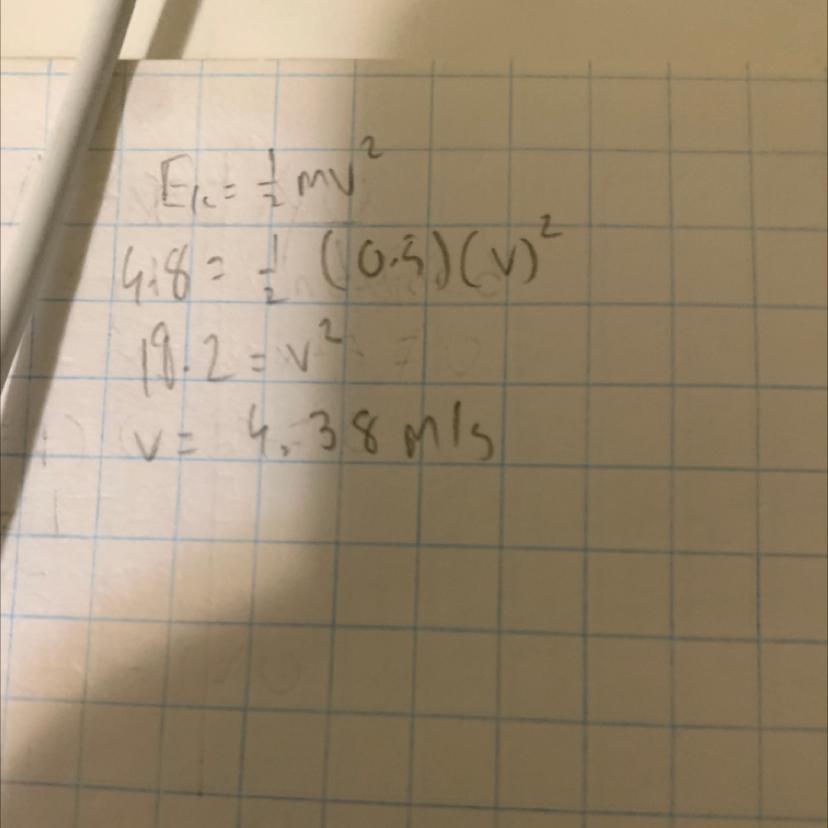 Ek = 1/2 mv²
4.8 = 1/2 (0.5)(v)²
19.2 = v²
v = 4.38 m/s